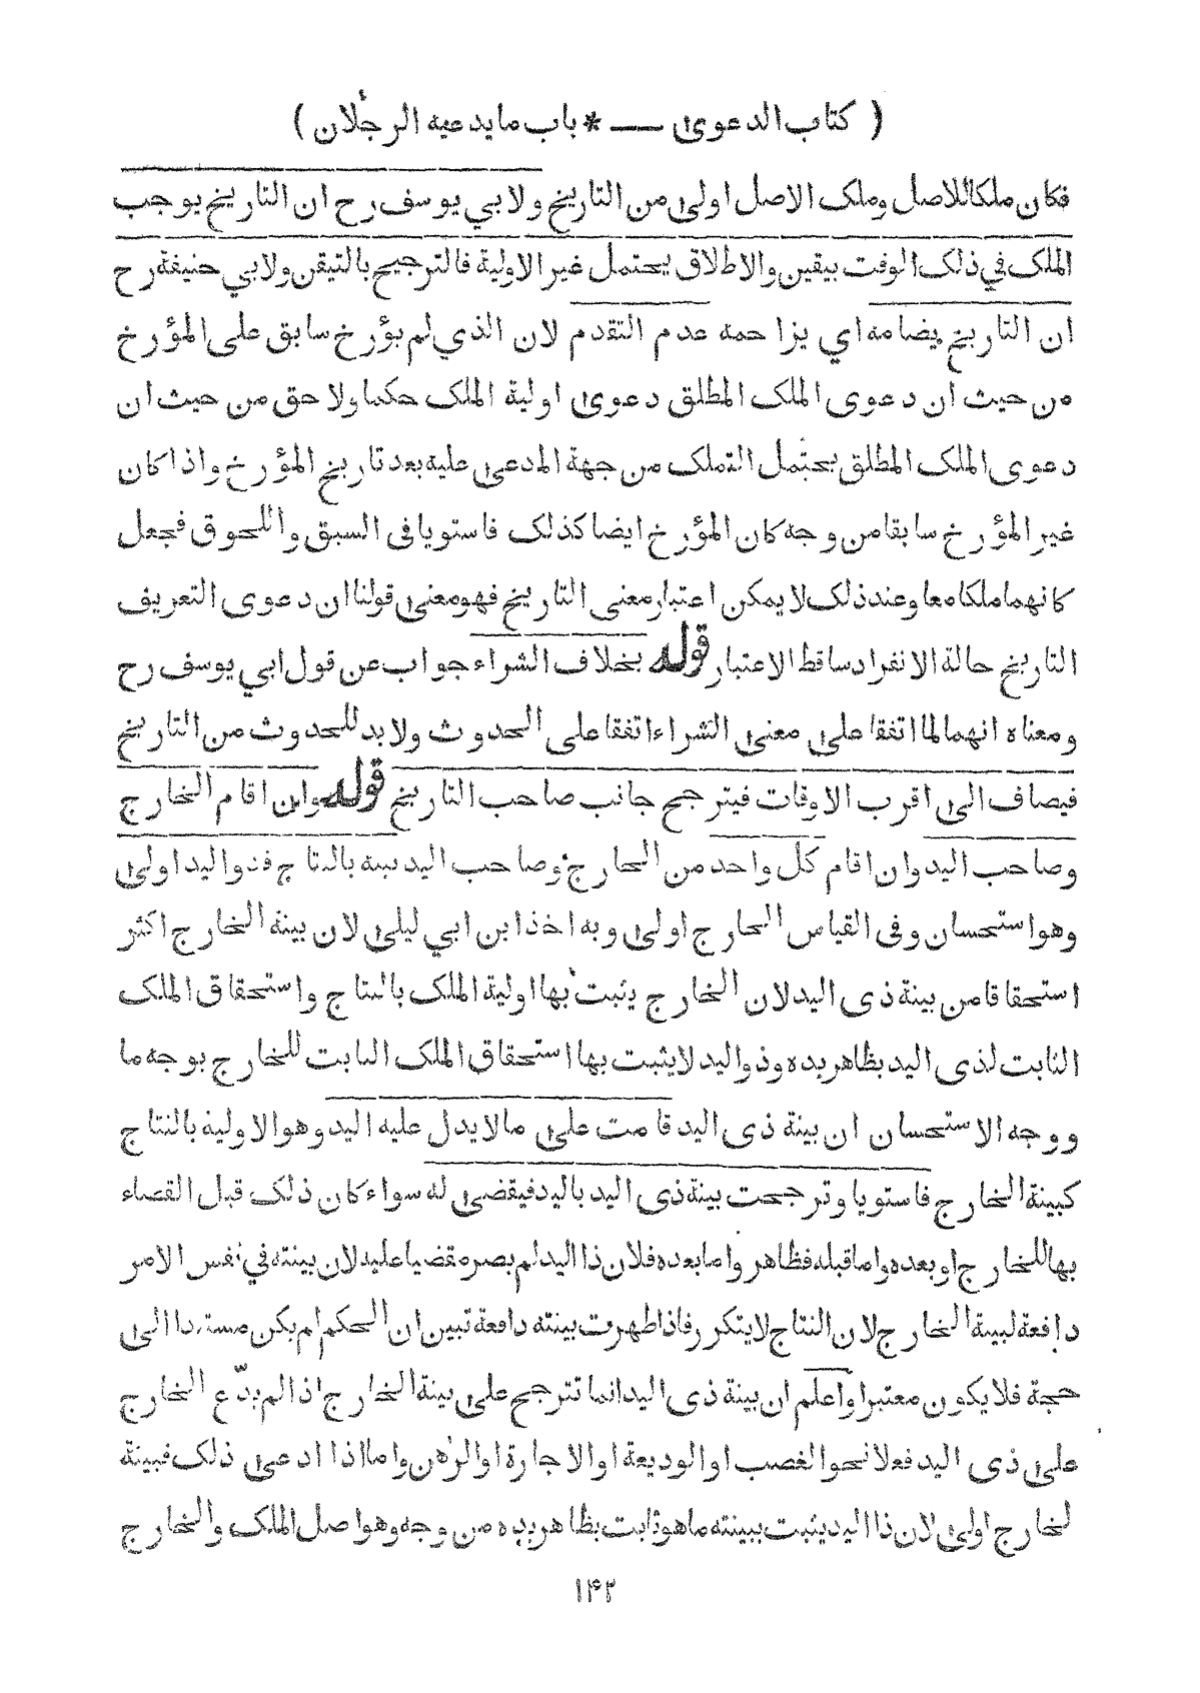 ( كتاب الدعوى — * باب ما يدعيه الرجلان )
فكان ملكا للاصل وملك الاصل اولى من التاريخ ولابي يوسف رح ان التاريخ يوجب
الملك في ذلك الوقت بيقين والاطلاق يحتمل غير الاولية فالترجيح بالتيقن ولابي حنيفة رح
ان التاريخ يضامه اي يزاحمه عدم التقدم لان الذي لم يؤرخ سابق على المؤرخ
من حيث ان دعوى الملك المطلق دعوى اولية الملك حكما ولاحق من حيث ان
دعوى الملك المطلق يحتمل التملك من جهة المدعى عليه بعد تاريخ المؤرخ واذا كان
غير المؤرخ سابقا من وجه كان المؤرخ ايضا كذلك فاستويا في السبق واللحوق فجعل
كانهما ملكا معا وعند ذلك لا يمكن اعتبار معنى التاريخ فهو معنى قولنا ان دعوى التعريف
التاريخ حالة الانفراد ساقط الاعتبار قوله بخلاف الشراء جواب عن قول ابي يوسف رح
ومعناه انهما لما اتفقا على معنى الشراء اتفقا على الحدوث ولابد للحدوث من التاريخ
فيضاف الى اقرب الاوقات فيترجح جانب صاحب التاريخ قوله وان اقام الخارج
وصاحب اليد وان اقام كل واحد من الخارج وصاحب اليد بينه بالنتاج فذو اليد اولى
وهو استحسان وفى القياس الخارج اولى وبه اخذ ابن ابي ليلى لان بينة الخارج اكثر
استحقاقا من بينة ذى اليد لان الخارج يثبت بها اولية الملك بالنتاج واستحقاق الملك
الثابت لذى اليد بظاهر يده وذو اليد لا يثبت بها استحقاق الملك الثابت للخارج بوجه ما
ووجه الاستحسان ان بينة ذى اليد قامت على ما لا يدل عليه اليد وهو الاولية بالنتاج
كبينة الخارج فاستويا وترجحت بينة ذى اليد باليد فيقضى له سواء كان ذلك قبل القضاء
بها للخارج او بعده واما قبله فظاهر واما بعده فلان ذا اليد لم يصر مقضيا عليه لان بينته في نفس الامر
دافعة لبينة الخارج لان النتاج لا يتكرر فاذا ظهرت بينته دافعة تبين ان الحكم لم يكن مستندا الى
حجة فلا يكون معتبرا واعلم ان بينة ذى اليد انما تترجح على بينة الخارج اذا لم يدّع الخارج
على ذى اليد فعلا نحو الغصب او الوديعة او الاجارة او الرهن واما اذا ادعى ذلك فبينة
لخارج اولى لان ذا اليد يثبت ببينته ما هو ثابت بظاهر يده من وجه وهو اصل الملك والخارج
۱۴۲